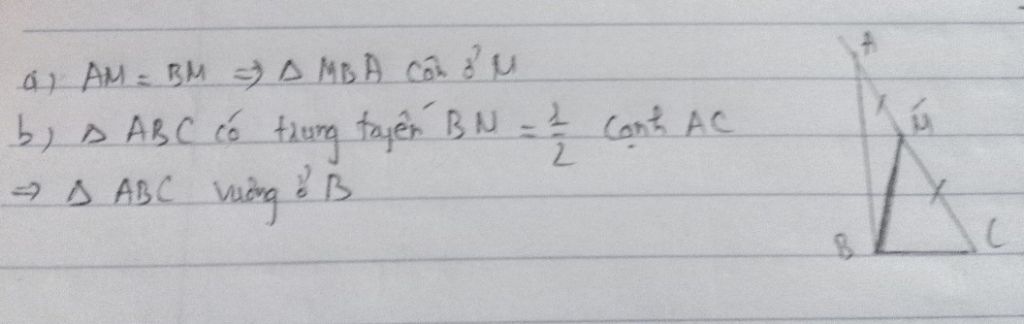 a) AM = BM => Δ MBA cân ở M
b) Δ ABC có trung tuyến BM = 1/2 cạnh AC
=> Δ ABC vuông ở B
A
M
B
C